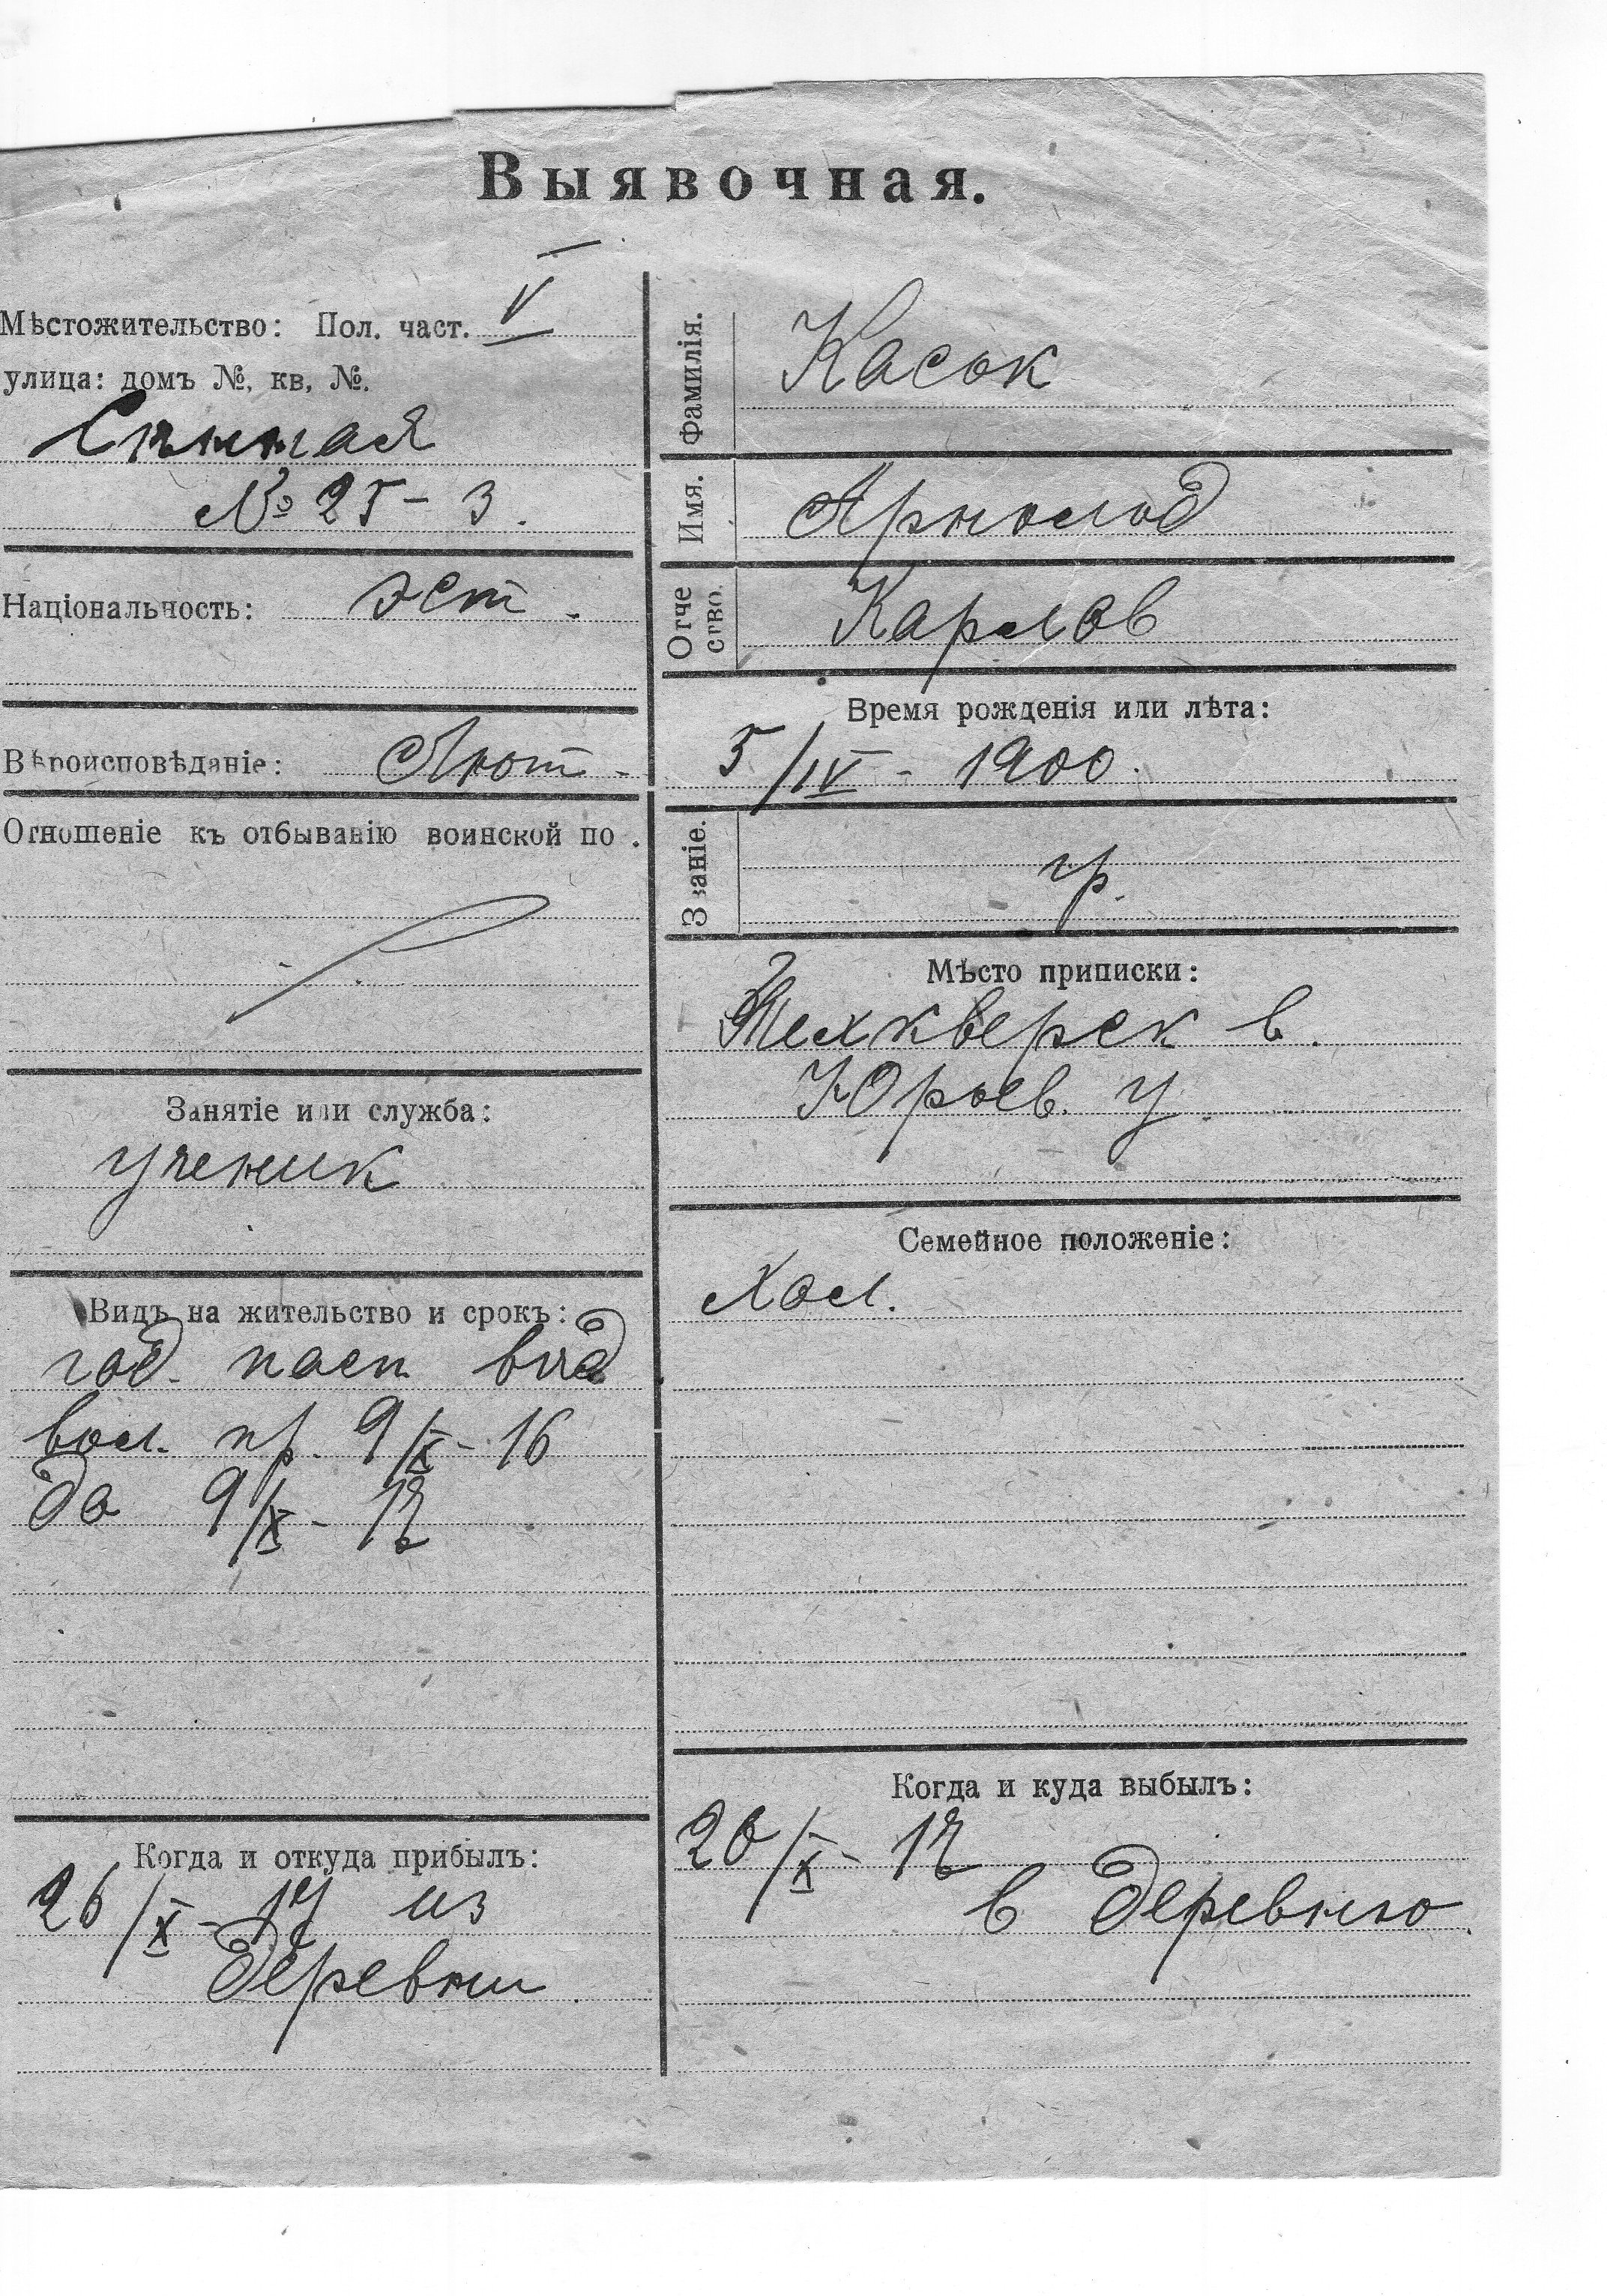 Выявочная.
Мѣстожительство: Пол. част. V
улица: домъ №, кв, №.
Сѣнная
№ 25 – 3.
Національность: эст.
Вѣроисповѣданіе: Лют.
Отношеніе къ отбыванію воинской по .
Занятіе или служба:
ученик
Видъ на жительство и срокъ:
год. пасп. выд
вол. пр. 9/X - 16
до 9/X - 17
Когда и откуда прибылъ:
26/X - 17 из
деревни.
Фамилія. Касок
Имя. Арнольд
Отче
ство. Карлов
Время рожденія или лѣта:
5/IV - 1900.
Званіе.
гр.
Мѣсто приписки:
в.
Юрьев. у.
Семейное положеніе:
Хол.
Когда и куда выбылъ:
20/X - 17
в деревню.